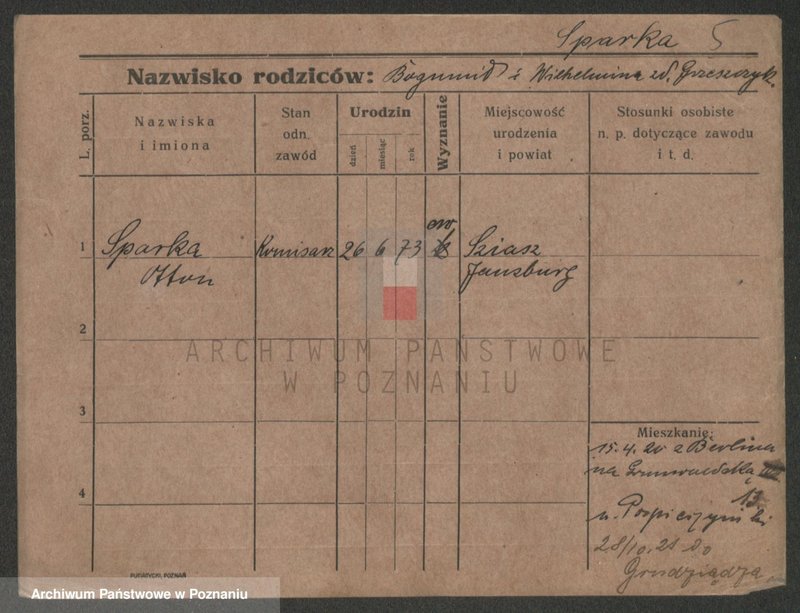 Sparka 5
Nazwisko rodziców: Bogumił i Wilhelmina zd. Grzeszczyk
L. porz.
Nazwiska
i imiona
Stan
odn.
zawód
Urodzin
dzień
miesiąc
rok
Wyznanie
Miejscowość
urodzenia
i powiat
Stosunki osobiste
n. p. dotyczące zawodu
i t. d.
1 Sparka Komisarz 26 6 73 ew Sziasz
Otton Jansburg
ARCHIWUM PAŃSTWOWE
W POZNANIU
2
3
4
Mieszkanie:
15.4.20 z Berlina
na Grunwaldzką
13
u. Pospieszyński
28/10.21 do
Grudziądza
PUŁATYCKI, POZNAŃ
Archiwum Państwowe w Poznaniu